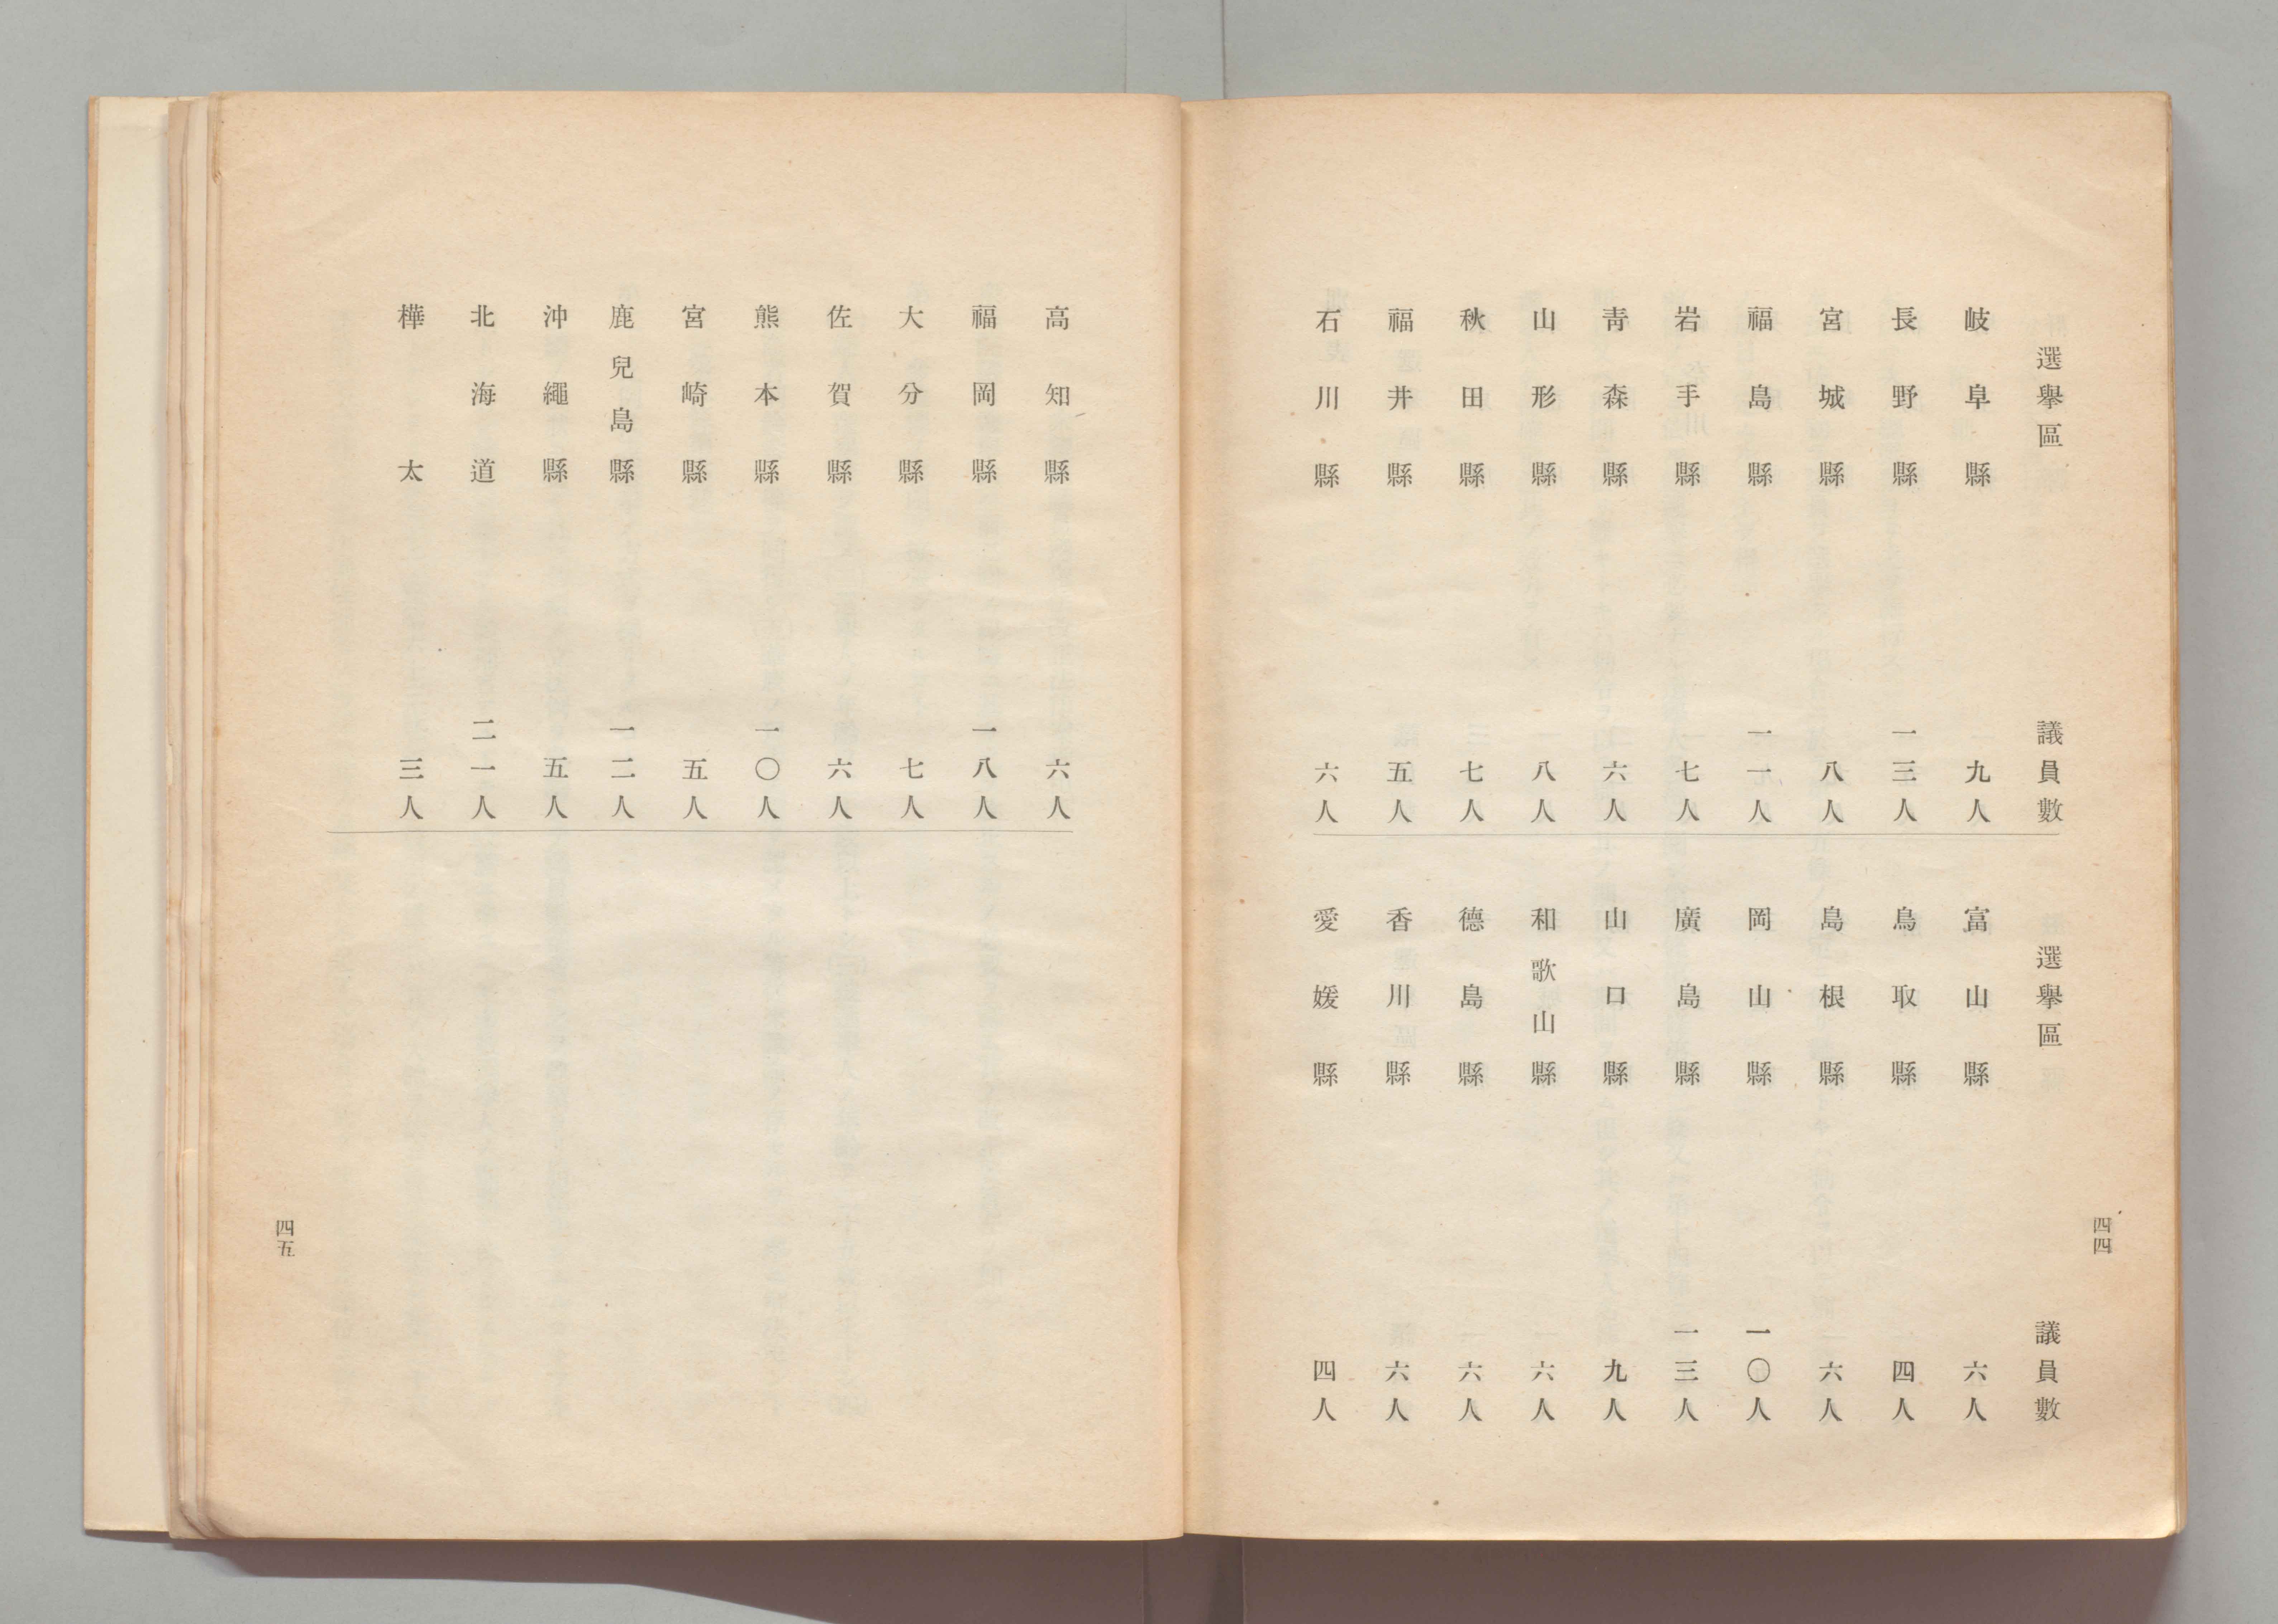 選擧區　議員數
岐阜縣　九人
長野縣　一三人
宮城縣　八人
福島縣　一一人
岩手縣　七人
靑森縣　六人
山形縣　八人
秋田縣　七人
福井縣　五人
石川縣　六人
選擧區　議員數
富山縣　六人
鳥取縣　四人
島根縣　六人
岡山縣　一〇人
廣島縣　一三人
山口縣　九人
和歌山縣　六人
德島縣　六人
香川縣　六人
愛媛縣　四人
四四
高知縣　六人
福岡縣　一八人
大分縣　七人
佐賀縣　六人
熊本縣　一〇人
宮崎縣　五人
鹿兒島縣　一二人
沖繩縣　五人
北海道　二一人
樺太　三人
四五